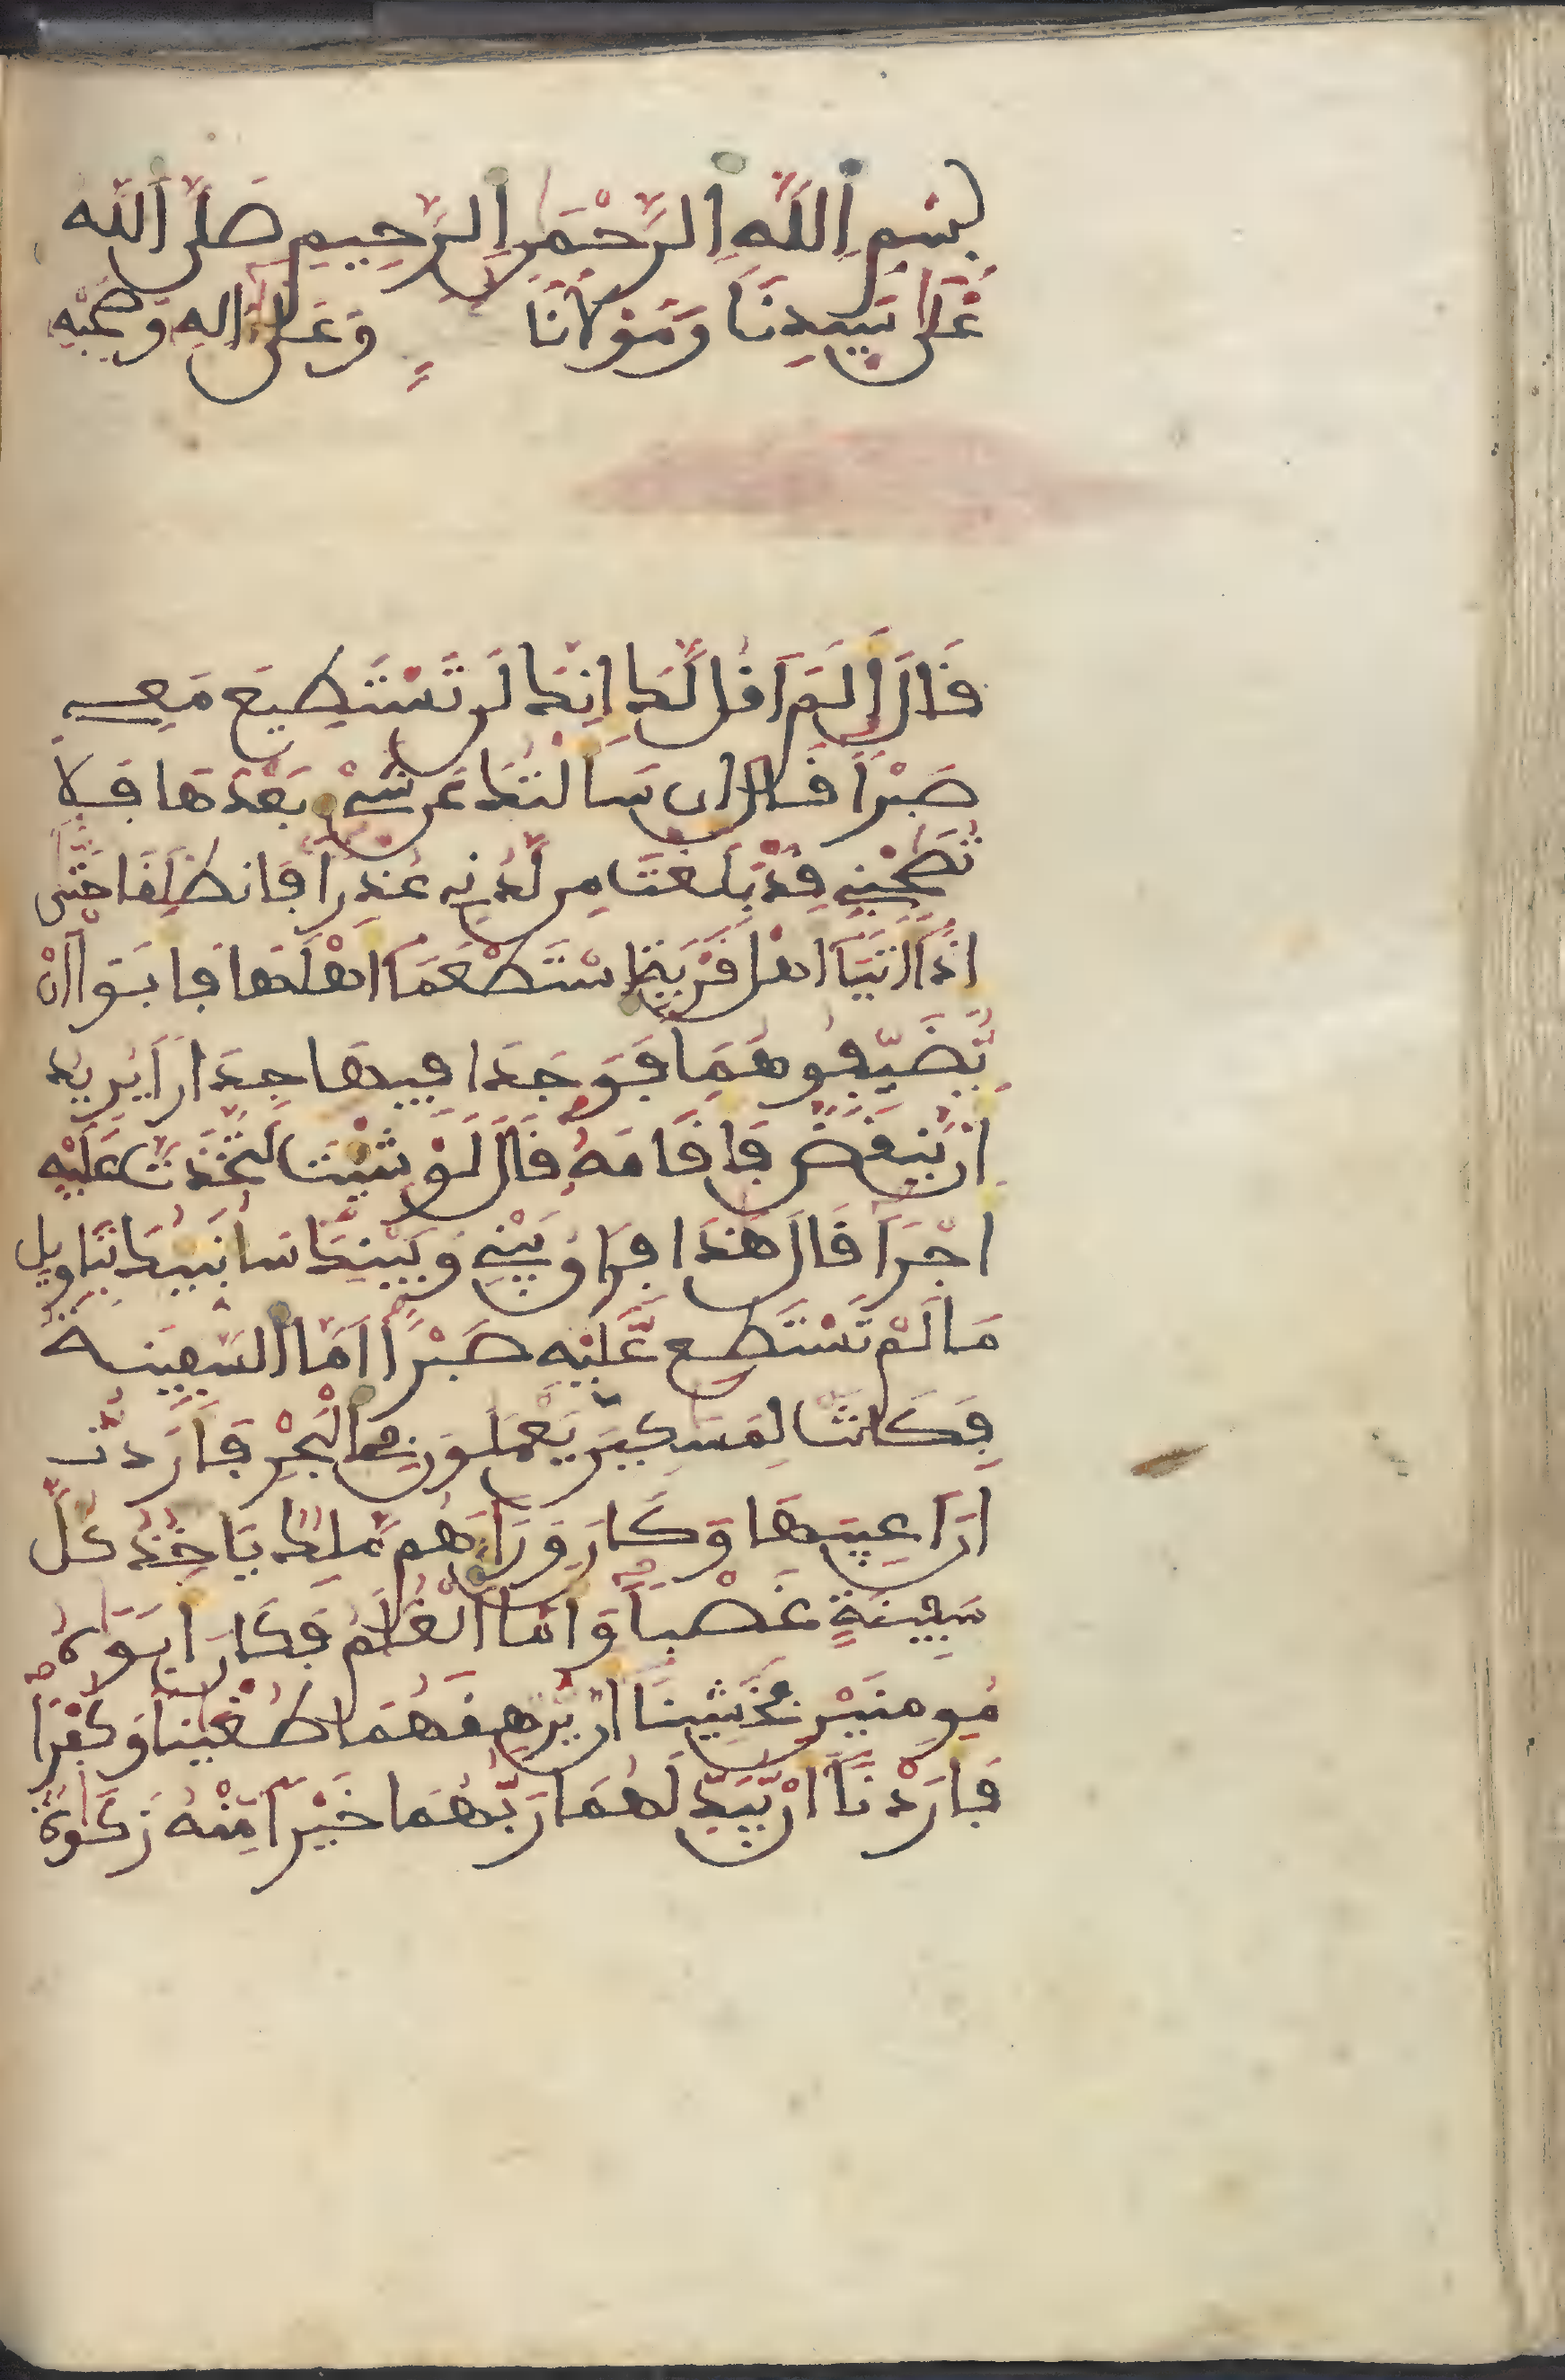 بِسْمِ اِللَّهِ اِلرَّحْمَنِ اِلرَّحِيمِ صَلَّى اَللَّه
عَلَى سَيِّدِنَا وَمَوْلَانَا وَعَلَى ءَالِهِ وَصَحْبِهِ
قَالَ أَلَمْ أَقُل لَّكَ إِنَّكَ لَن تَسْتَطِيعَ مَعِے
صَبْراً قَالَ إِن سَأَلْتُكَ عَن شَےْءٍ بَعْدَهَا فَلَا
تُصَٰحِبْنِے قَدْ بَلَغْتَ مِن لَّدُنِے عُذْراً فَانطَلَقَا حَتَّى
إِذَا أَتَيَا أَهْلَ قَرْيَةٍ اِسْتَطْعَمَا أَهْلَهَا فَأَبَوْاْ أَنْ
يُّضَيِّفُوهُمَا فَوَجَدَا فِيهَا جِدَاراً يُرِيدُ
أَنْ يَّنقَضَّ فَأَقَامَهُ قَالَ لَوْ شِئْتَ لَتَّخَذتَّ عَلَيْهِ
أَجْراً قَالَ هَٰذَا فِرَاقُ بَيْنِے وَبَيْنِكَ سَأُنَبِّئُكَ بِتَاوِيلِ
مَا لَمْ تَسْتَطِع عَّلَيْهِ صَبْراً أَمَّا اَلسَّفِينَةُ
فَكَانَتْ لِمَسَٰكِينَ يَعْمَلُونَ فِے اِلْبَحْرِ فَأَرَدتُّ
أَنَ اَعِيبَهَا وَكَانَ وَرَاءَهُم مَّلِكٌ يَاخُذُ كُلَّ
سَفِينَةٍ غَصْباً وَأَمَّا اَلْغُلَٰمُ فَكَانَ أَبَوَٰهُ
مُومِنَيْنِ فَخَشِينَا أَنْ يُّرْهِقَهُمَا طُغْيَٰناً وَكُفْراً
فَأَرَدْنَا أَنْ يُّبَدِّلَهُمَا رَبُّهُمَا خَيْراً مِّنْهُ زَكَوٰةً